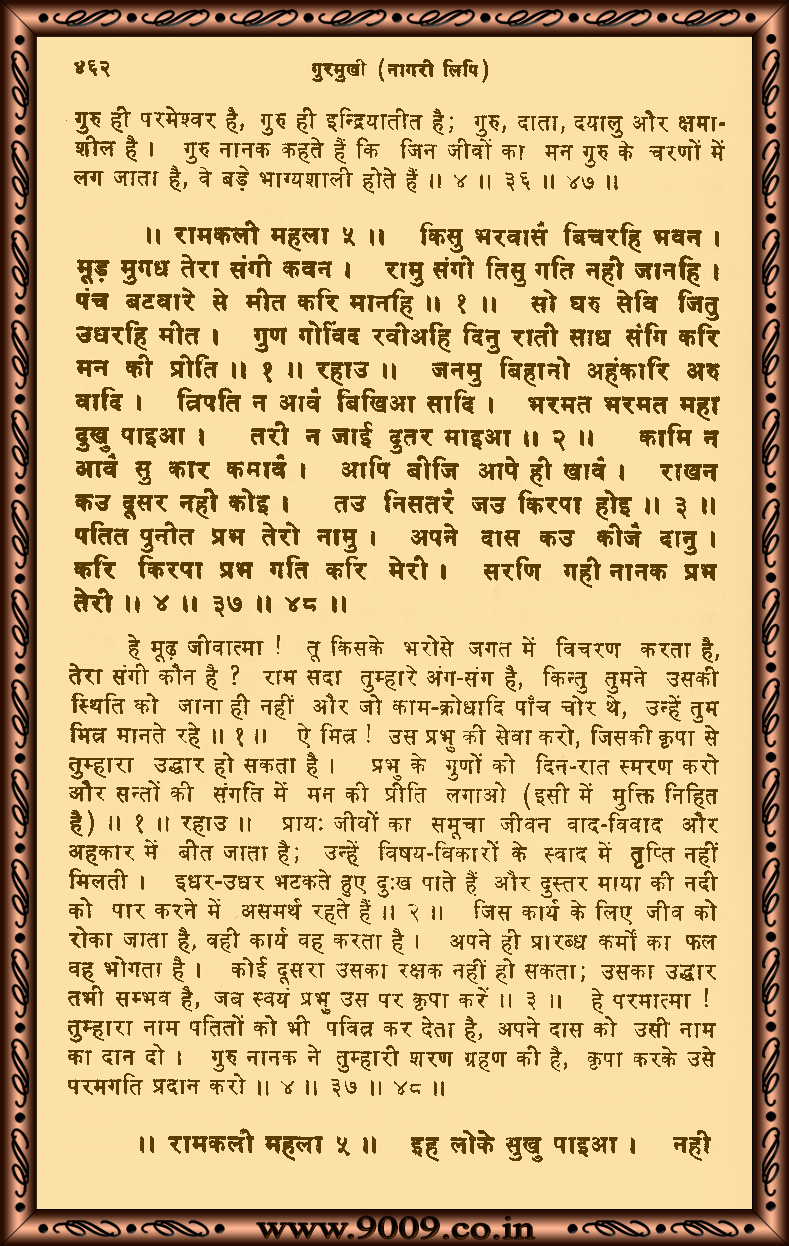 ४६२ गुरमुखी (नागरी लिपि)
गुरु ही परमेश्वर है, गुरु ही इन्द्रियातीत है; गुरु, दाता, दयालु और क्षमा-
शील है । गुरु नानक कहते हैं कि जिन जीवों का मन गुरु के चरणों में
लग जाता है, वे बड़े भाग्यशाली होते हैं ॥ ४ ॥ ३६ ॥ ४७ ॥
॥ रामकली महला ५ ॥ किसु भरवासै बिचरहि भवन ।
मूड़ मुगध तेरा संगी कवन । रामु संगी तिसु गति नही जानहि ।
पंच बटवारे से मीत करि मानहि ॥ १ ॥ सो घरु सेवि जितु
उधरहि मीत । गुण गोविंद रवीअहि दिनु राती साध संगि करि
मन की प्रीति ॥ १ ॥ रहाउ ॥ जनमु बिहानो अहंकारि अरु
वादि । त्रिपति न आवै बिखिआ सादि । भरमत भरमत महा
दुखु पाइआ । तरी न जाई दुतर माइआ ॥ २ ॥ कामि न
आवै सु कार कमावै । आपि बीजि आपे ही खावै । राखन
कउ दूसर नही कोइ । तउ निसतरै जउ किरपा होइ ॥ ३ ॥
पतित पुनीत प्रभ तेरो नामु । अपने दास कउ कीजै दानु ।
करि किरपा प्रभ गति करि मेरी । सरणि गही नानक प्रभ
तेरी ॥ ४ ॥ ३७ ॥ ४८ ॥
हे मूढ़ जीवात्मा ! तू किसके भरोसे जगत में विचरण करता है,
तेरा संगी कौन है ? राम सदा तुम्हारे अंग-संग है, किन्तु तुमने उसकी
स्थिति को जाना ही नहीं और जो काम-क्रोधादि पाँच चोर थे, उन्हें तुम
मित्र मानते रहे ॥ १ ॥ ऐ मित्र ! उस प्रभु की सेवा करो, जिसकी कृपा से
तुम्हारा उद्धार हो सकता है । प्रभु के गुणों को दिन-रात स्मरण करो
और सन्तों की संगति में मन की प्रीति लगाओ (इसी में मुक्ति निहित
है) ॥ १ ॥ रहाउ ॥ प्रायः जीवों का समूचा जीवन वाद-विवाद और
अहकार में बीत जाता है; उन्हें विषय-विकारों के स्वाद में तृप्ति नहीं
मिलती । इधर-उधर भटकते हुए दुःख पाते हैं और दुस्तर माया की नदी
को पार करने में असमर्थ रहते हैं ॥ २ ॥ जिस कार्य के लिए जीव को
रोका जाता है, वही कार्य वह करता है । अपने ही प्रारब्ध कर्मों का फल
वह भोगता है । कोई दूसरा उसका रक्षक नहीं हो सकता; उसका उद्धार
तभी सम्भव है, जब स्वयं प्रभु उस पर कृपा करें ॥ ३ ॥ हे परमात्मा !
तुम्हारा नाम पतितों को भी पवित्र कर देता है, अपने दास को उसी नाम
का दान दो । गुरु नानक ने तुम्हारी शरण ग्रहण की है, कृपा करके उसे
परमगति प्रदान करो ॥ ४ ॥ ३७ ॥ ४८ ॥
॥ रामकली महला ५ ॥ इह लोके सुखु पाइआ । नही
www.9009.co.in